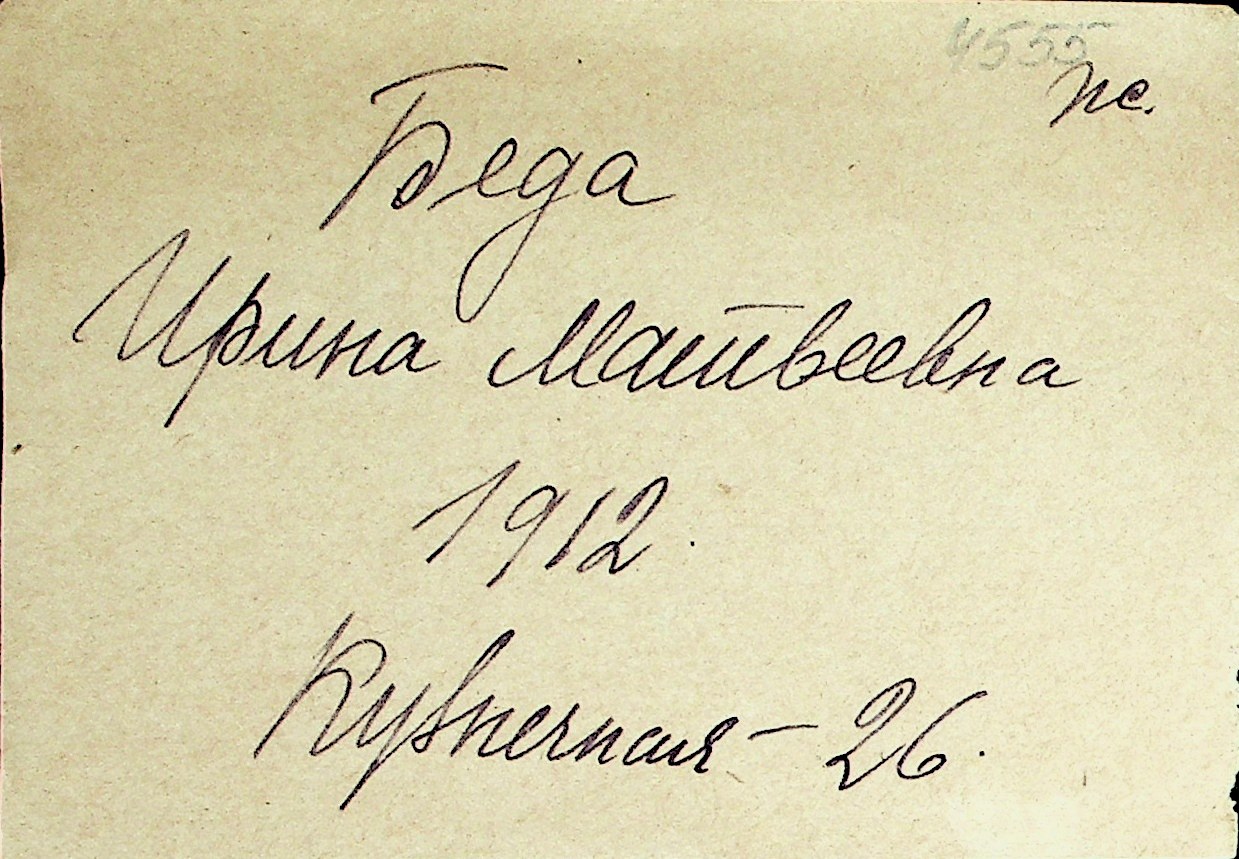 4555
пс.
Беда
Ирина Матвеевна
1912.
Кузнечная – 26.